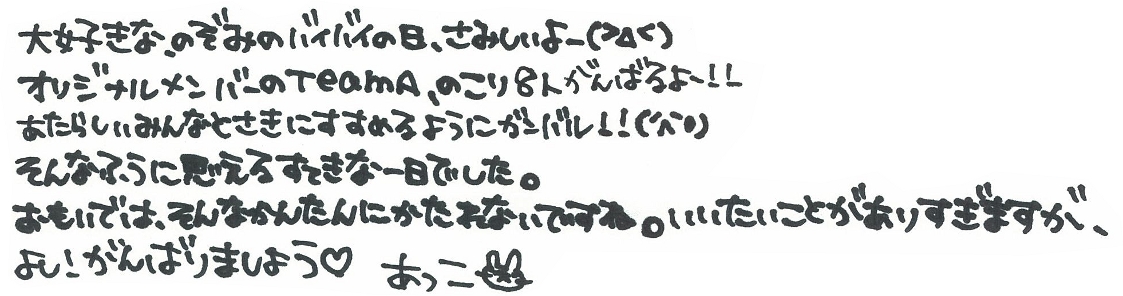 大好きな、のぞみのバイバイの日、さみしいよー(>△<)
オリジナルメンバーのTeamA、のこり8人がんばるよー!!
あたらしいみんなとさきにすすめるようにガンバル!!(^^0)
そんなふうに思えるすてきな一日でした。
おもいでは、そんなかんたんにかたれないですね。いいたいことがありすぎますが、
よし!がんばりましょう♡ あっこ